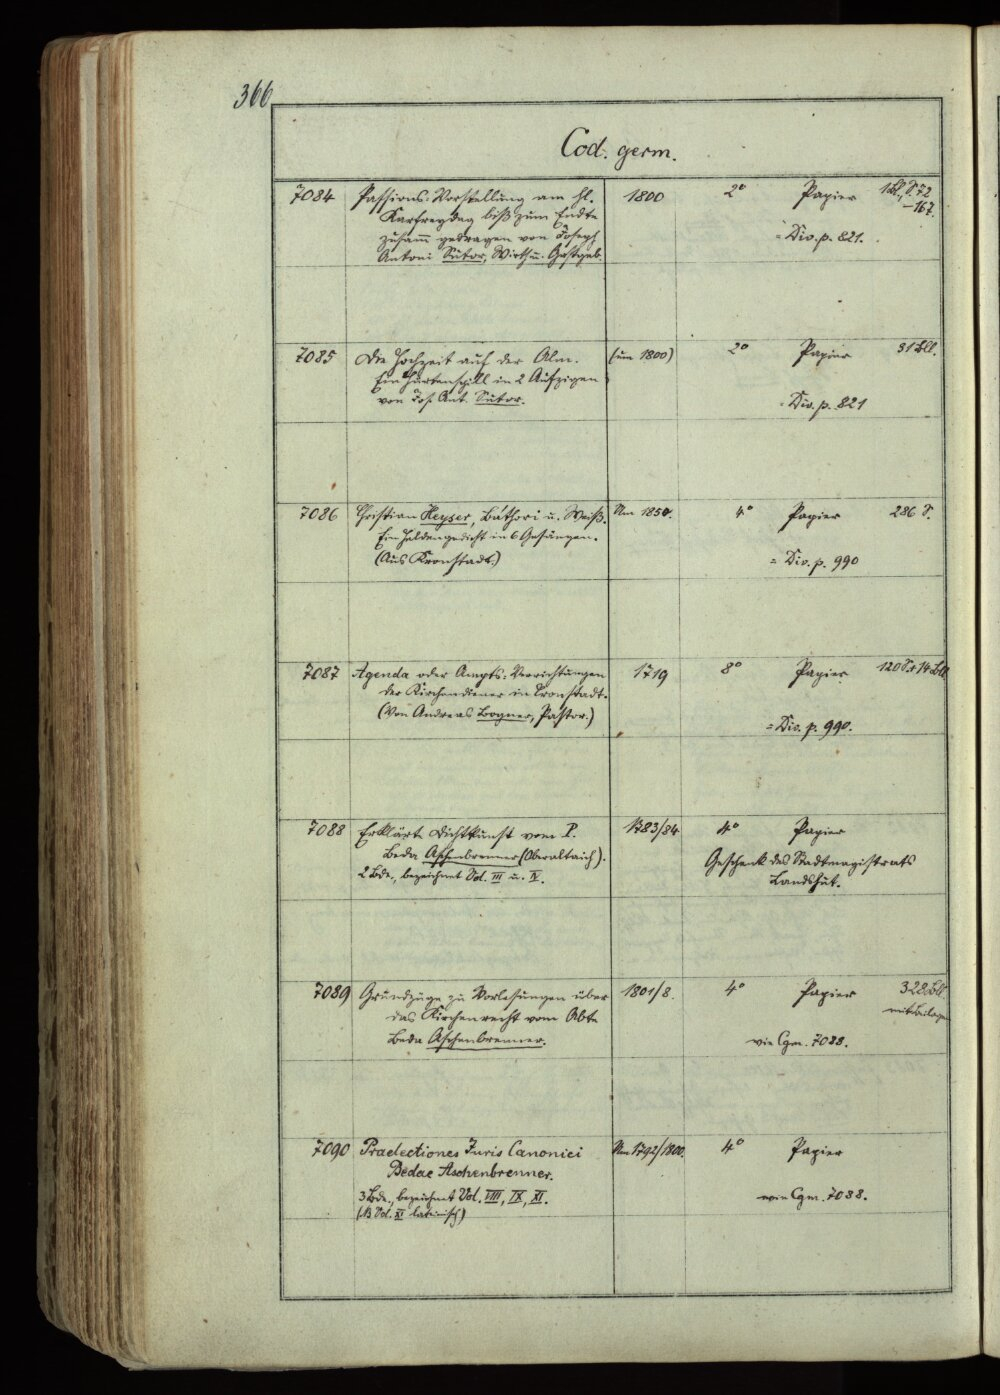 366
Cod. germ.
7084 Passions-Vorstellung am hl. 1800 2° Papier 1 Bl., S. 72
Karfreydag biß zum Endte –167.
zusam̄ gedragen von Joseph = Div. p. 821.
Antoni Sutor, Wirth u. Gastgeb.
7085 Die Hochzeit auf der Alm. (um 1800) 2° Papier 31 Bll.
Ein Hürtenspill in 2 Aufzigen
von Jos. Ant. Sutor. = Div. p. 821
7086 Christian Heyser, Báthori u. Weiß. Um 1850. 4° Papier 286 S.
Ein Heldengedicht in 6 Gesängen.
(Aus Kronstadt.) = Div. p. 990
7087 Agenda oder Ampts-Verrichtungen 1719 8° Papier 120 S. + 14 Bll.
der Kirchendiener in Cronstadt.
(Von Andreas Bogner, Pastor.)
= Div. p. 990.
7088 Erklärte Dichtkunst vom P. 1783/84 4° Papier
Beda Aschenbrenner (Oberaltaich). Geschenk des Stadtmagistrats
2 Bde., bezeichnet Vol. III u. IV. Landshut.
7089 Grundzüge zu Vorlesungen über 1801/8. 4° Papier 322 Bll.
das Kirchenrecht vom Abte mit Beilagen
Beda Aschenbrenner. wie Cgm. 7088.
7090 Praelectiones Juris Canonici Um 1792/1800. 4° Papier
Bedae Aschenbrenner.
3 Bde., bezeichnet Vol. VIII, IX, XI. wie Cgm. 7088.
(NB Vol. XI lateinisch)